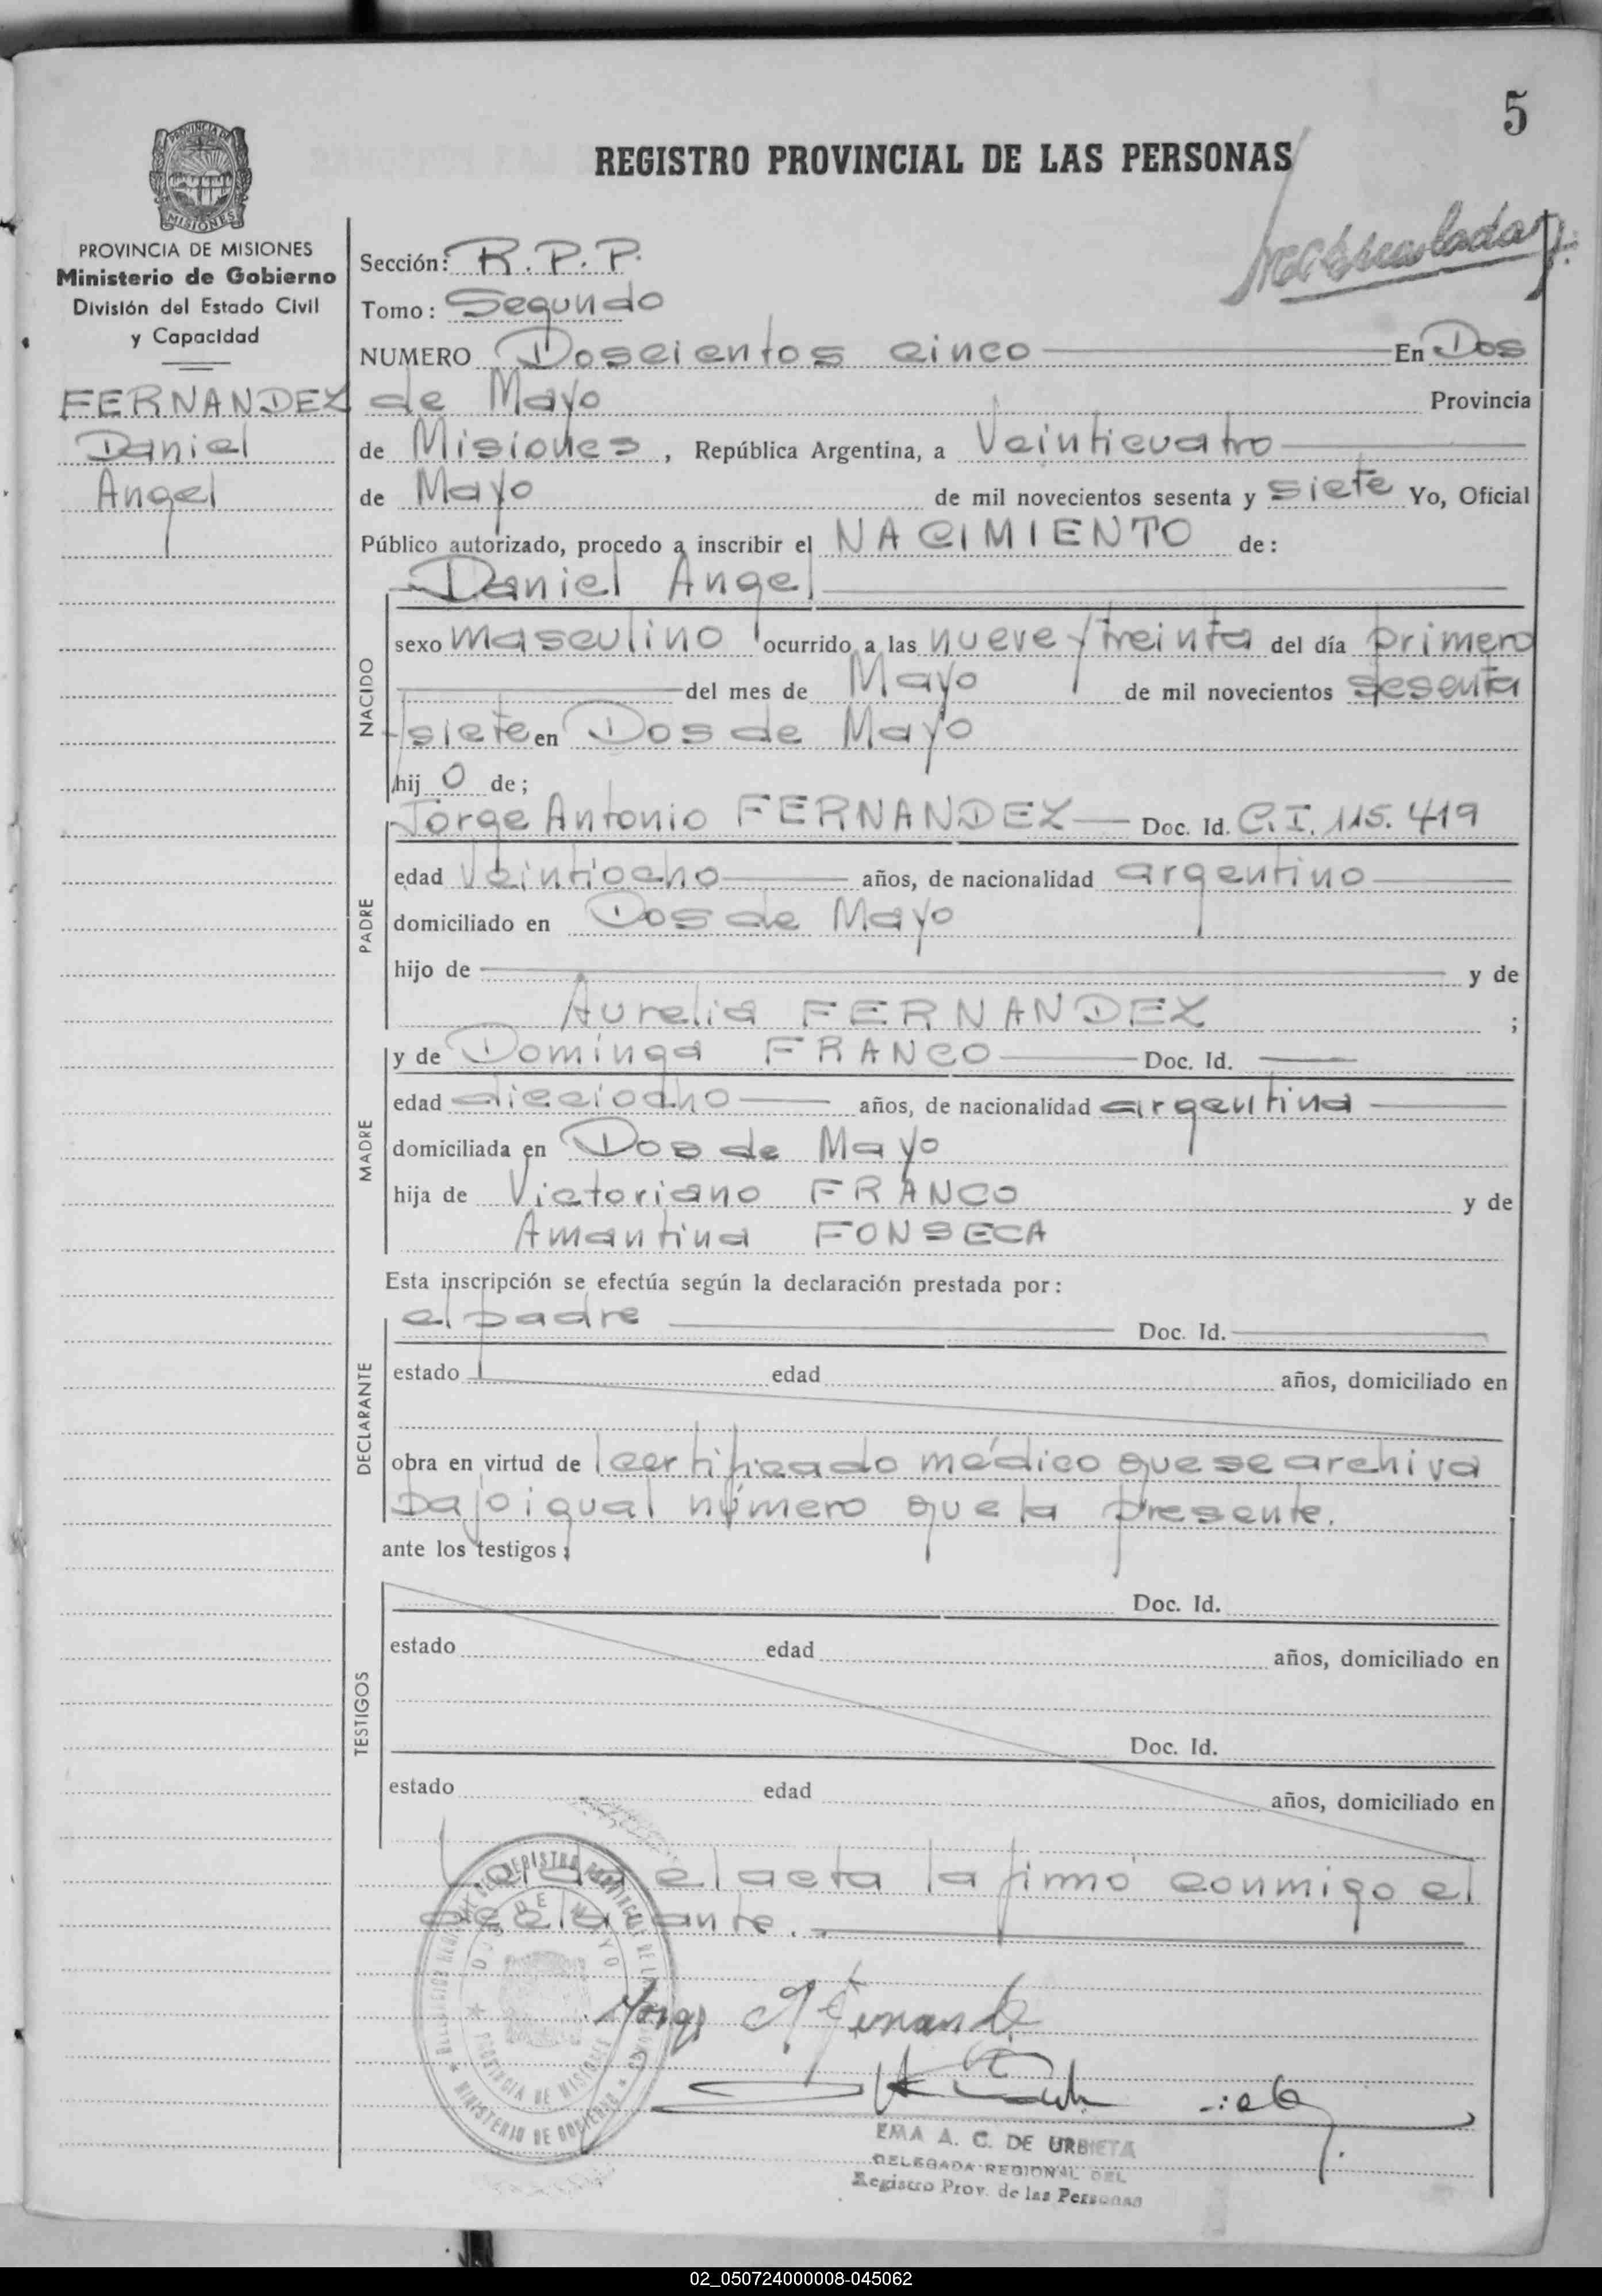 5
REGISTRO PROVINCIAL DE LAS PERSONAS
PROVINCIA DE
MISIONES
PROVINCIA DE MISIONES
Ministerio de Gobierno
División del Estado Civil
y Capacidad
FERNANDEZ
Daniel
Angel
Sección: R.P.P.
Tomo: Segundo
NUMERO Doscientos cinco En Dos
de Mayo Provincia
de Misiones, República Argentina, a Veinticuatro
de Mayo de mil novecientos sesenta y siete Yo, Oficial
Público autorizado, procedo a inscribir el NACIMIENTO de:
Daniel Angel
NACIDO
sexo masculino ocurrido a las nueve y treinta del día primero
del mes de Mayo de mil novecientos sesenta
y siete en Dos de Mayo
hij o de;
Jorge Antonio FERNANDEZ Doc. Id. C.I. 115.419
PADRE
edad Veintiocho años, de nacionalidad argentino
domiciliado en Dos de Mayo
hijo de y de
Aurelia FERNANDEZ ;
y de Dominga FRANCO Doc. Id.
MADRE
edad dieciocho años, de nacionalidad argentina
domiciliada en Dos de Mayo
hija de Victoriano FRANCO y de
Amantina FONSECA
Esta inscripción se efectúa según la declaración prestada por:
el padre Doc. Id.
DECLARANTE
estado edad años, domiciliado en
obra en virtud de certificado médico que se archiva
bajo igual número que la presente.
ante los testigos;
Doc. Id.
TESTIGOS
estado edad años, domiciliado en
Doc. Id.
estado edad años, domiciliado en
Leída el acta la firmó conmigo el
declarante.
DOS DE MAYO
PROVINCIA DE MISIONES
MINISTERIO DE GOBIERNO
Jorge A Fernande
EMA A. C. DE URBIETA
DELEGADA REGIONAL DEL
Registro Prov. de las Personas
02_050724000008-045062